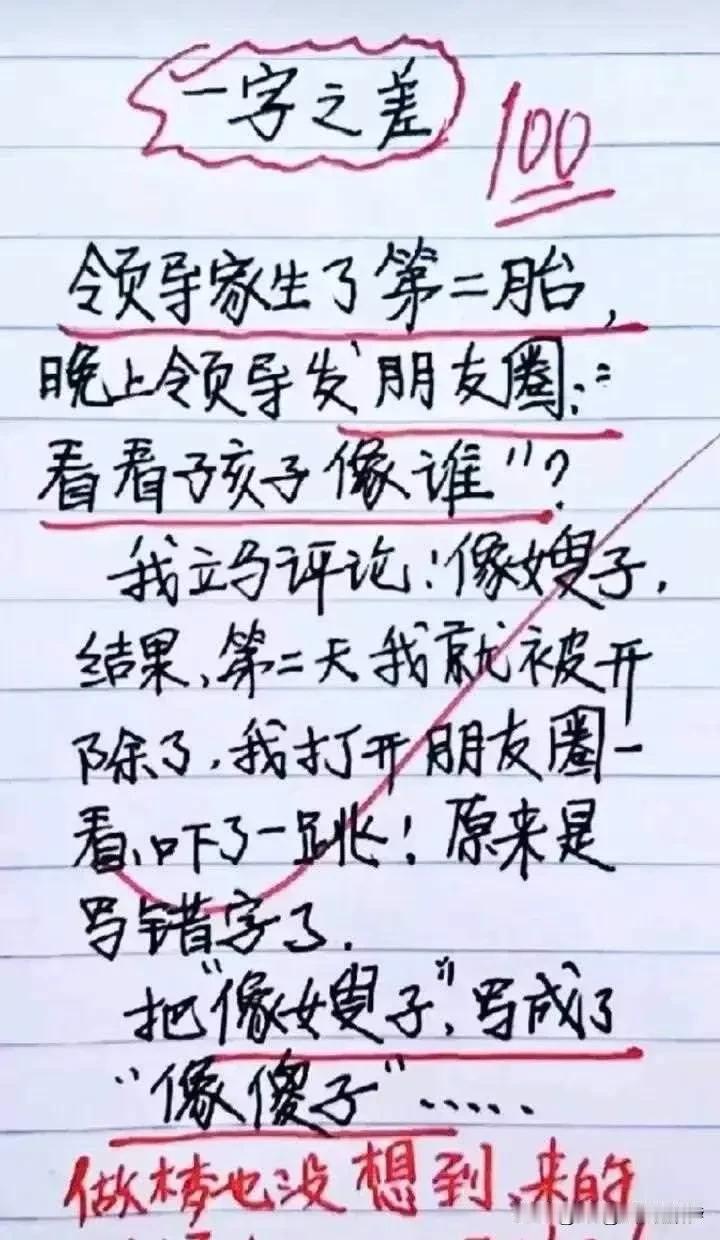 一字之差
100
领导家生了第二胎,
晚上领导发朋友圈:"
看看孩子像谁"?
我立马评论:像嫂子,
结果、第二天我就被开
除了,我打开朋友圈一
看、吓了一跳!原来是
写错字了.
把"像嫂子",写成了
"像傻子"......
做梦也没想到、来的